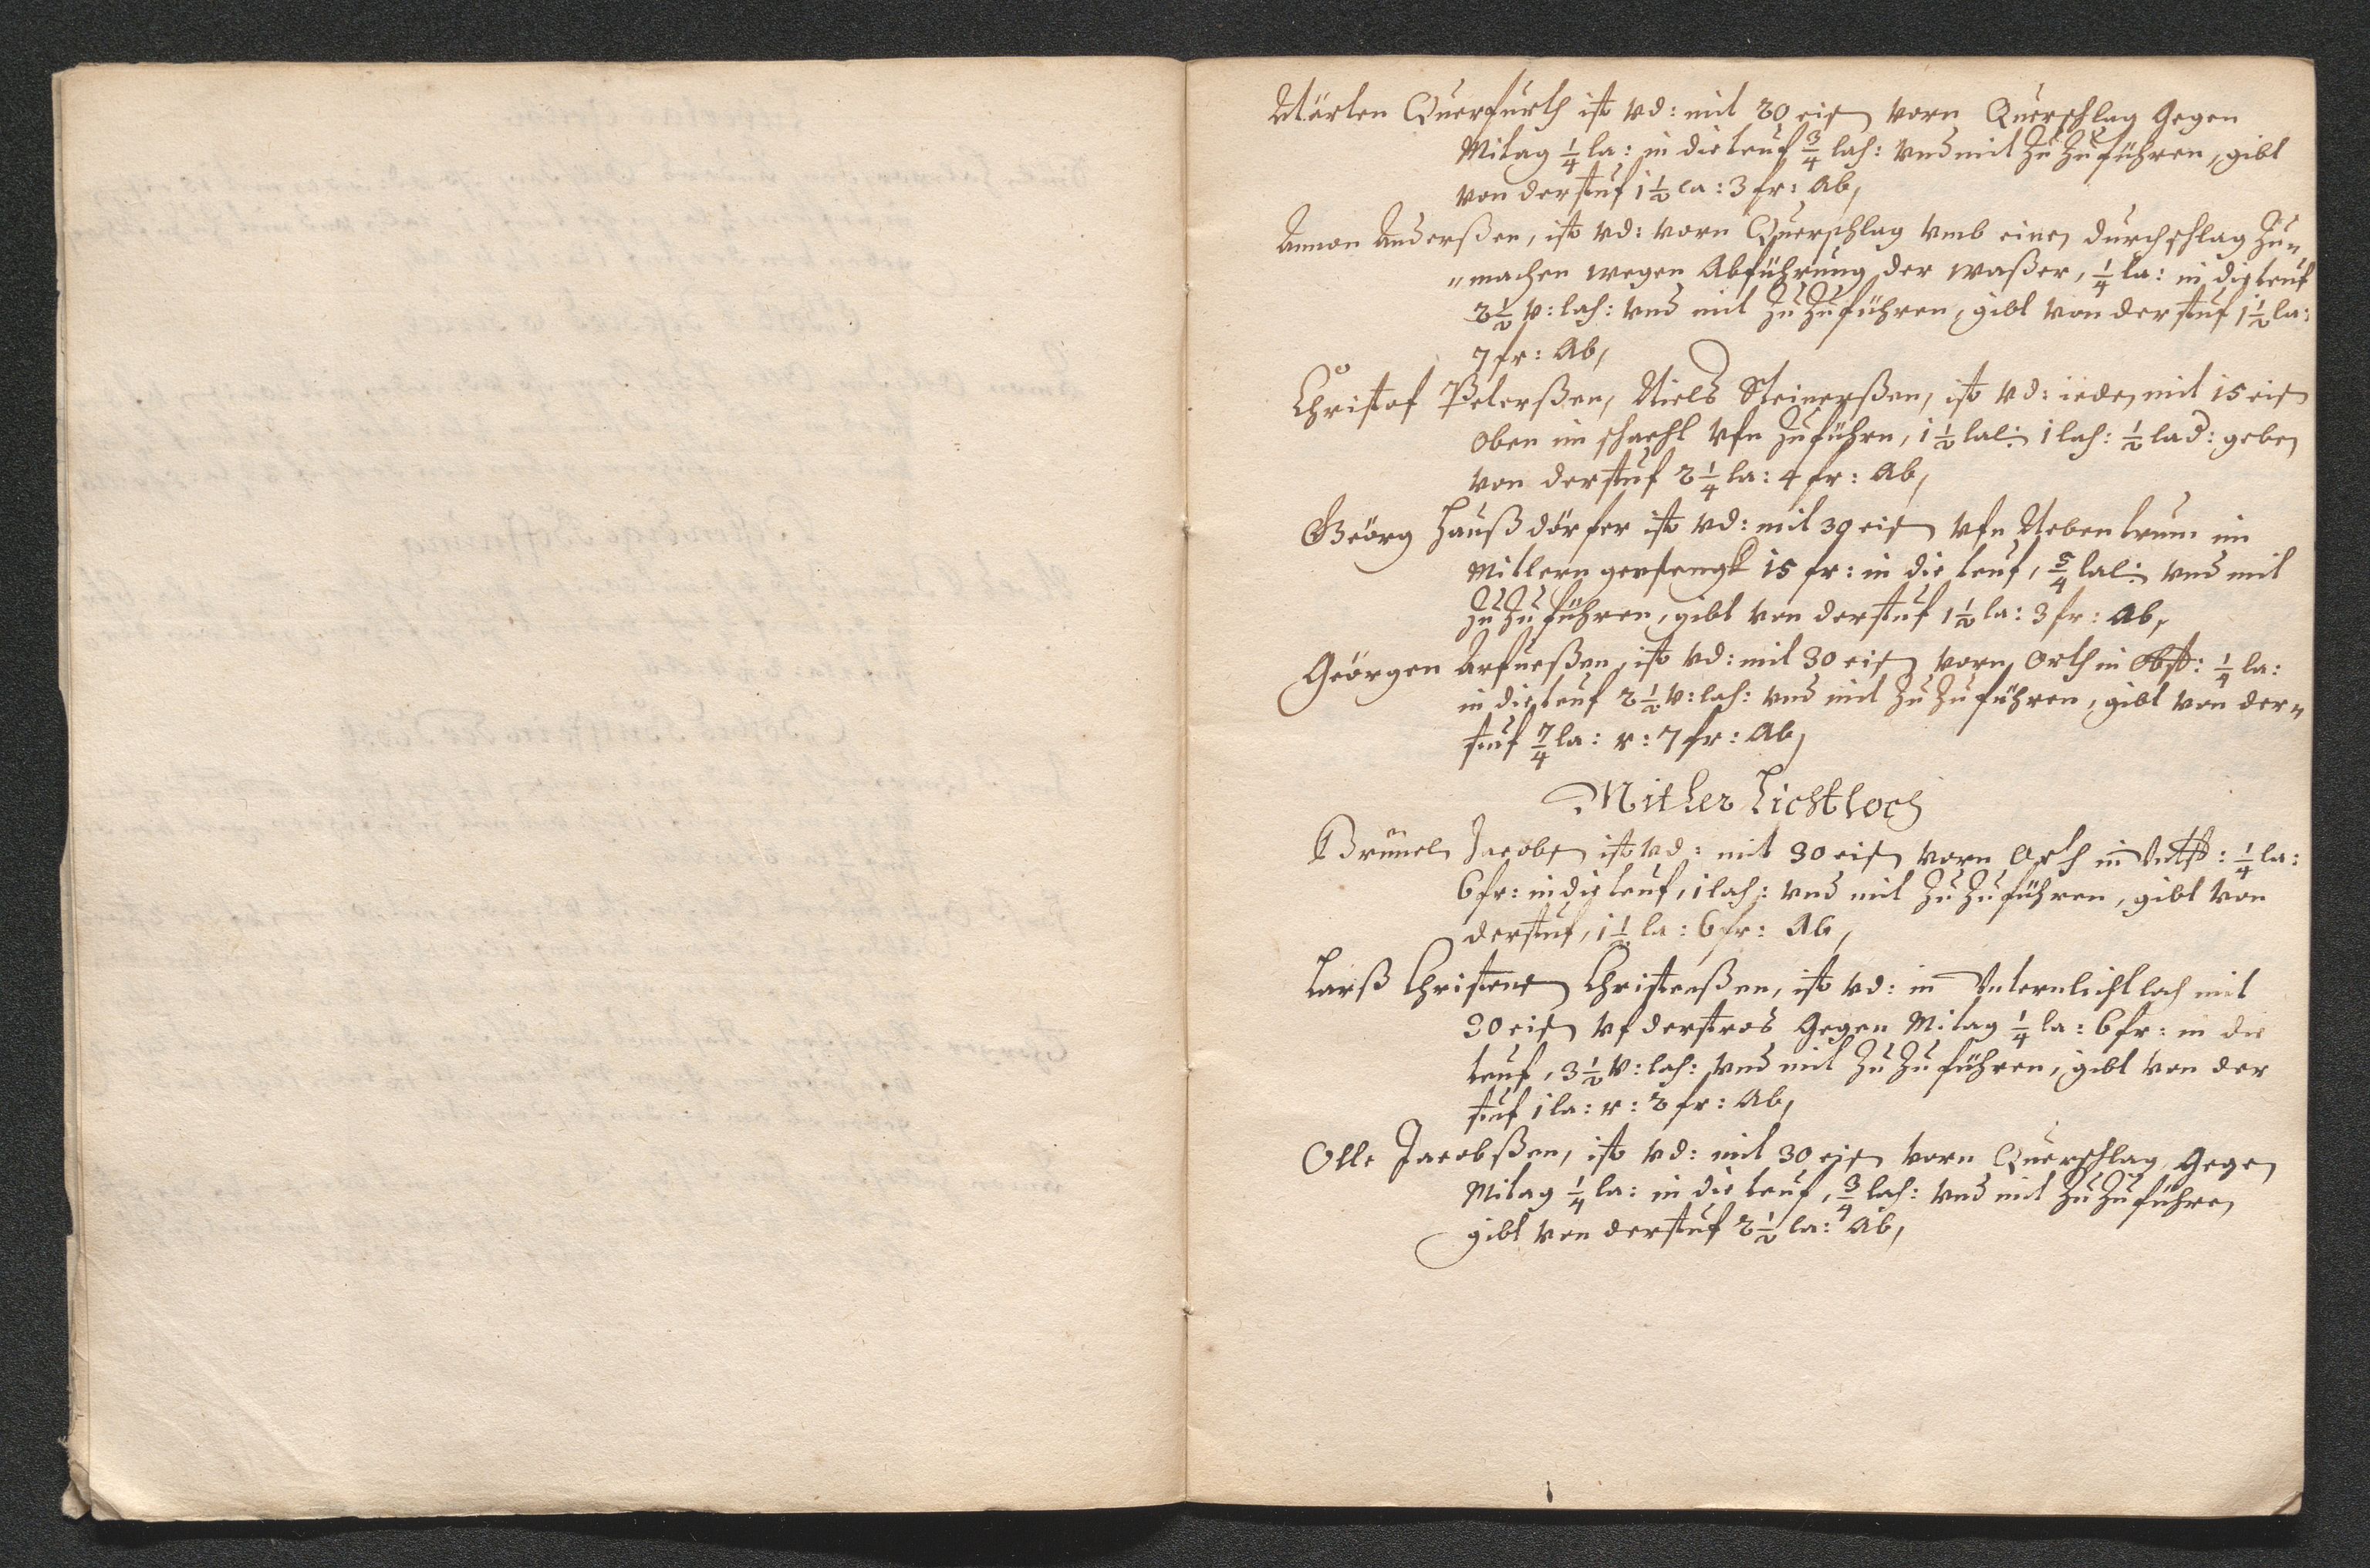 Märten Querfurth ist vd: mit 20 eisen vorn Querschlag gegen
Mitag 1/4 la: in die teuf 3/4 lach: vnd mit zu zuführen, gibt
von der stuf 1 1/2 la: 3 fr: ab,
Amon Anderßen, ist vd: vorn Querschlag vmb einen durchschlag zu„
„machen wegen abführung der waßer, 1/4 la: in die teuf
2 1/2 v: lach: vnd mit zu zuführen, gibt von der stuf 1 1/2 la:
7 fr: ab,
Christof Peterßen, Niels Steinerßen, ist vd: ieder mit 15 eisen
oben im schacht vfn zuführn, 1 1/2 lal: 1 lach: 1/2 lad: geben
von der stuf 2 1/4 la: 4 fr: ab,
Geörg Haußdörfer ist vd: mit 30 eisen vfn Neben trum im
Mitlern gesengk 15 fr: in die teuf, 5/4 lal: vnd mit
zu zuführen, gibt von der stuf 1 1/2 la: 3 fr: ab,
Geörgen Arfueßen, ist vd: mit 30 eisen vorn orth in obst: 1/4 la:
in die teuf 2 1/2 v: lach: vnd mit zu zuführen, gibt von der„
stuf 7/4 la: r: 7 fr: ab,
Mitler Lichtloch
Brünel Jacobsen ist vd: mit 30 eisen vorn orth in Vntst: 1/4 la:
6 fr: in die teuf, 1 lach: vnd mit zu zuführen, gibt von
der stuf, 1 1/2 la: 6 fr: ab,
Larß Christens Christenßen, ist vd: in Vnternlichtloch mit
30 eisen vf der stros gegen Mitag 1/4 la: 6 fr: in die
teuf, 3 1/2 v: lach: vnd mit zu zuführen, gibt von der
stuf 1 la: r: 2 fr: ab,
Olle Jacobßen, ist vd: mit 30 eisen vorn Querschlag gegen
Mitag 1/4 la: in die teuf, 3/4 lach: vnd mit zu zuführen
gibt von der stuf 2 1/2 la: ab,